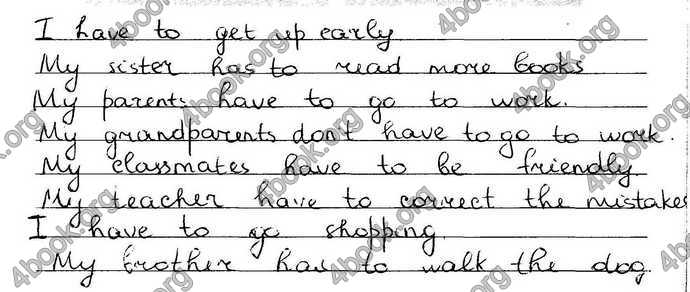 I have to get up early
My sister has to read more books
My parents have to go to work.
My grandparents don't have to go to work.
My classmates have to be friendly
My teacher have to correct the mistakes
I have to go shopping
My brother has to walk the dog.